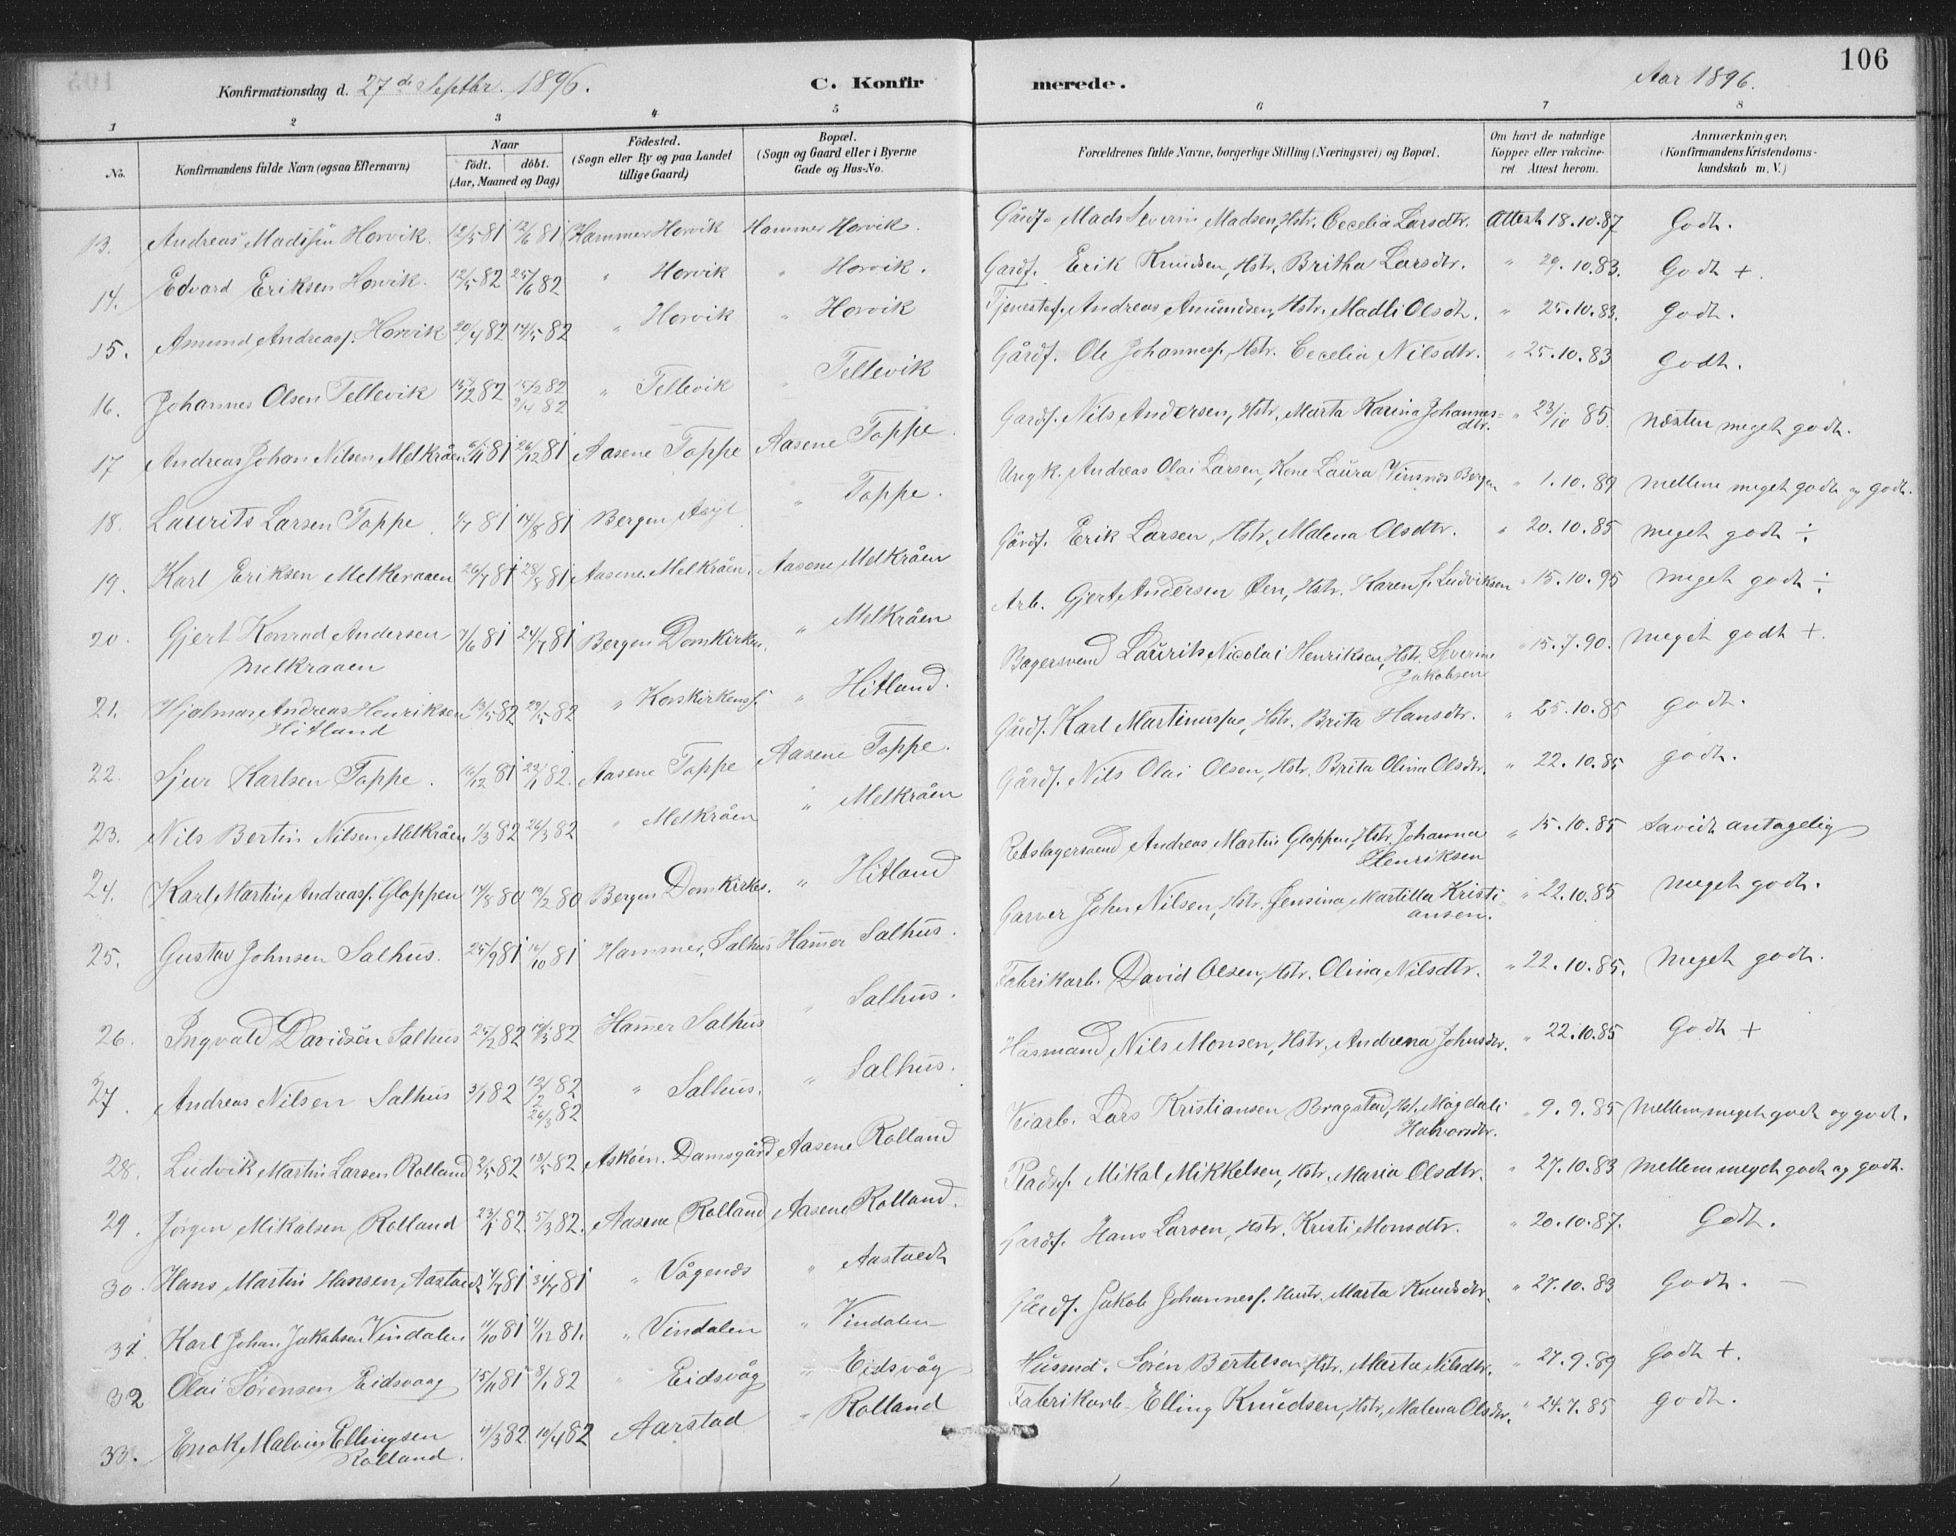 106
Konfirmationsdag d. 27de Septbr. 1896. C. Konfirmerede. Aar 1896.
1 2 3 4 5 6 7 8
No. Konfirmandens fulde Navn (ogsaa Efternavn) Naar født. døbt. (Aar, Maaned og Dag) Födested. (Sogn eller By og paa Landet tillige Gaard) Bopæl. (Sogn og Gaard eller i Byerne Gade og Hus-No. Forældrenes fulde Navne, borgerlige Stilling (Næringsvei) og Bopæl. Om havt de naturlige Kopper eller vakcineret Attest herom. Anmærkninger, (Konfirmandens Kristendomskundskab m. V.)
13. Andreas Madssen Horvik. 12/5 81 12/6 81 Hammer Horvik Hammer Horvik. Gårdf. Mads Severin Madsen, Hstr. Cecelia Larsdtr. Attest 18.10.87 Godt.
14. Edvard Eriksen Horvik. 12/5 82 25/6 82 " Horvik " Horvik. Gardf. Erik Knudsen, Hstr. Britha Larsdtr. " 29.10.83. Godt +.
15. Amund Andreasf. Horvik 20/4 82 14/5 82 " Horvik " Horvik Tjenestef. Andreas Amundsen, Hstr. Madli Olsdt. " 25.10.83. Godt.
16. Johannes Olsen Tellevik 15/2 82 15/2 82 9/4 82 " Tellevik " Tellevik Gårdf. Ole Johannesf. Hstr. Cecelia Nilsdtr. " 25.10.83 Godt.
17 Andreas Johan Nilsen Melkråen 6/11 81 26/12 81 Aasene Toppe Aasene Toppe. Gardf. Nils Andersen, Hstr. Marta Karina Johannesdtr. " 23/10 85. næsten meget godt.
18. Laurits Larsen Toppe. 1/7 81 14/8 81 Bergen Asyl " Toppe. Ungk. Andreas Olai Larsen, Kone Laura Vinsnes Bergen " 1.10.89 mellem meget godt og godt.
19. Karl Eriksen Melkeraaen 26/7 81 28/8 81 Aasene Melkråen. Aasene Melkråen Gårdf. Erik Larsen, Hstr. Malena Olsdtr. " 20.10.85 meget godt ÷
20. Gjert Konrad Andersen Melkraaen 7/6 81 24/7 81 Bergen Domkirken. " Melkråen Arb. Gjert Andersen Øen, Hstr. Karen f. Ludviksen " 15.10.95 meget godt ÷
21. Hjalmar Andreas Henriksen Hitland 13/5 82 29/5 82 " Korskirkensf. " Hitland. Bagersvend Laurits Nicolai Henriksen, Hstr. Severine Jakobsen " 15.7.90. meget godt +.
22. Sjur Karlsen Toppe. 16/12 81 22/1 82. Aasene Toppe Aasene Toppe. Gårdf. Karl Martinussen, Hstr. Brita Hansdtr. " 25.10.85 godt.
23. Nils Bertin Nilsen Melkråen 1/3 82 26/3 82 " Melkråen " Melkråen Gårdf. Nils Olai Olsen, Hstr. Brita Olina Olsdtr. " 22.10.85 godt.
24. Karl Martin Andreasf. Gloppen 17/8 80 19/2 80 Bergen Domkirkes. " Hitland Rebslagersvend Andreas Martin Gloppen, Hstr. Johanna Henriksen " 15.10.85 Savidt antagelig
25. Gustav Johnsen Salhus. 25/9 81 16/10 81 Hammer, Salhus Hamer Salhus. Garver John Nilsen, Hstr. Jensina Martilla Kristiansen. " 22.10.85 meget godt.
26. Ingvald Davidsen Salhus 25/2 82 19/3 82 Hamer Salhus " Salhus. Fabrikarb. David Olsen, Hstr. Olina Nilsdtr. " 22.10.85. Meget godt.
27. Andreas Nilsen Salhus 3/1 82 12/2 82 26/3 82 " Salhus. " Salhus. Husmand Nils Monsen, Hstr. Andrena Johnsdtr. " 22.10.85 Godt +
28. Ludvik Martin Larsen Rolland 2/5 82 13/5 82 Askøen. Damsgård Aasene Rolland Veiarb. Lars Kristiansen Bragstad, Hst. Magdali Halvorsdtr. " 9.9.85 Mellem meget godt og godt.
29. Jørgen Mikalsen Rolland 23/1 82 5/3 82. Aasene Rolland Aasene Rolland. Pladsf. Mikal Mikkelsen, Hstr. Maria Olsdtr. " 27.10.83 mellem meget godt og godt.
30. Hans Martin Hansen Aastvedt 4/7 81 31/7 81 " Vågenes " Aastvedt Gardf. Hans Larsen, Hstr. Kristi Monsdtr. " 20.10.87. Godt.
31. Karl Johan Jakobsen Vindalen 11/10 81 4/12 81. " Vindalen " Vindalen Gårdf. Jakob Johannesf. Hustr. Marta Knudsdtr. " 27.10.83 Godt. —
32 Olai Sørensen Eidsvaag 15/11 81 8/1 82 " Eidsvåg " Eidsvåg Husmd. Sören Bertelsen, Hstr. Marta Nilsdtr. " 27.9.89 Godt +.
33. Enok Malvin Ellingsen Rolland. 11/3 82 10/4 82 Aarstad " Rolland Fabrikarb. Elling Knudsen, Hstr. Malena Olsdtr. " 24.7.85 godt.